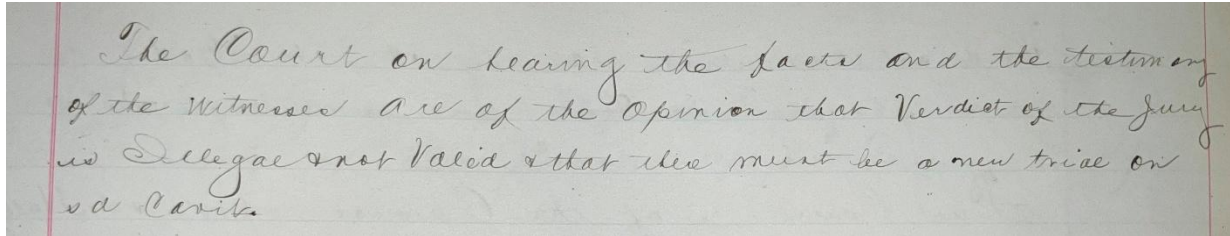 The Court on hearing the facts and the testimony
of the Witnesses are of the Opinion that Verdict of the Jury
is Illegal & not Valid & that there must be a new trial on
sd